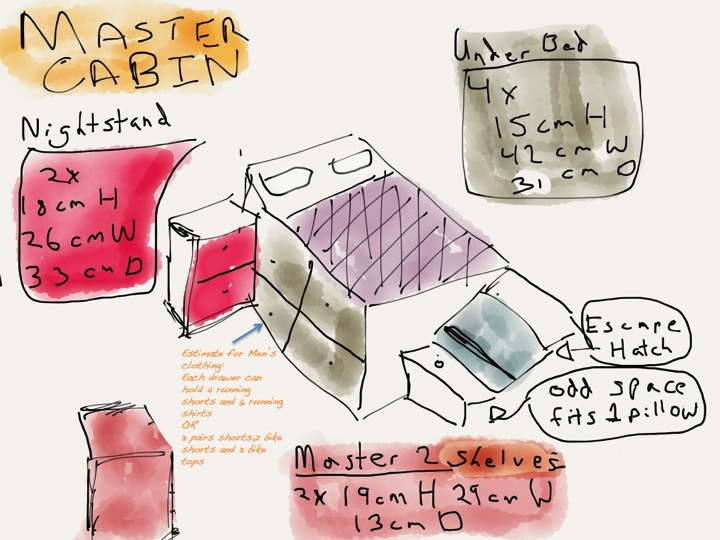 MASTER
CABIN
Under Bed
4x
15cm H
42 cm W
31 cm D
Nightstand
2x
18cm H
26cm W
33 cm D
Escape
Hatch
odd space
fits 1 pillow
Estimate for Men's
clothing:
Each drawer can
hold 4 running
shorts and 6 running
shirts
OR
3 pairs shorts,2 bike
shorts and 3 bike
tops
Master 2 Shelves
2x 19cm H 29cm W
13cm D